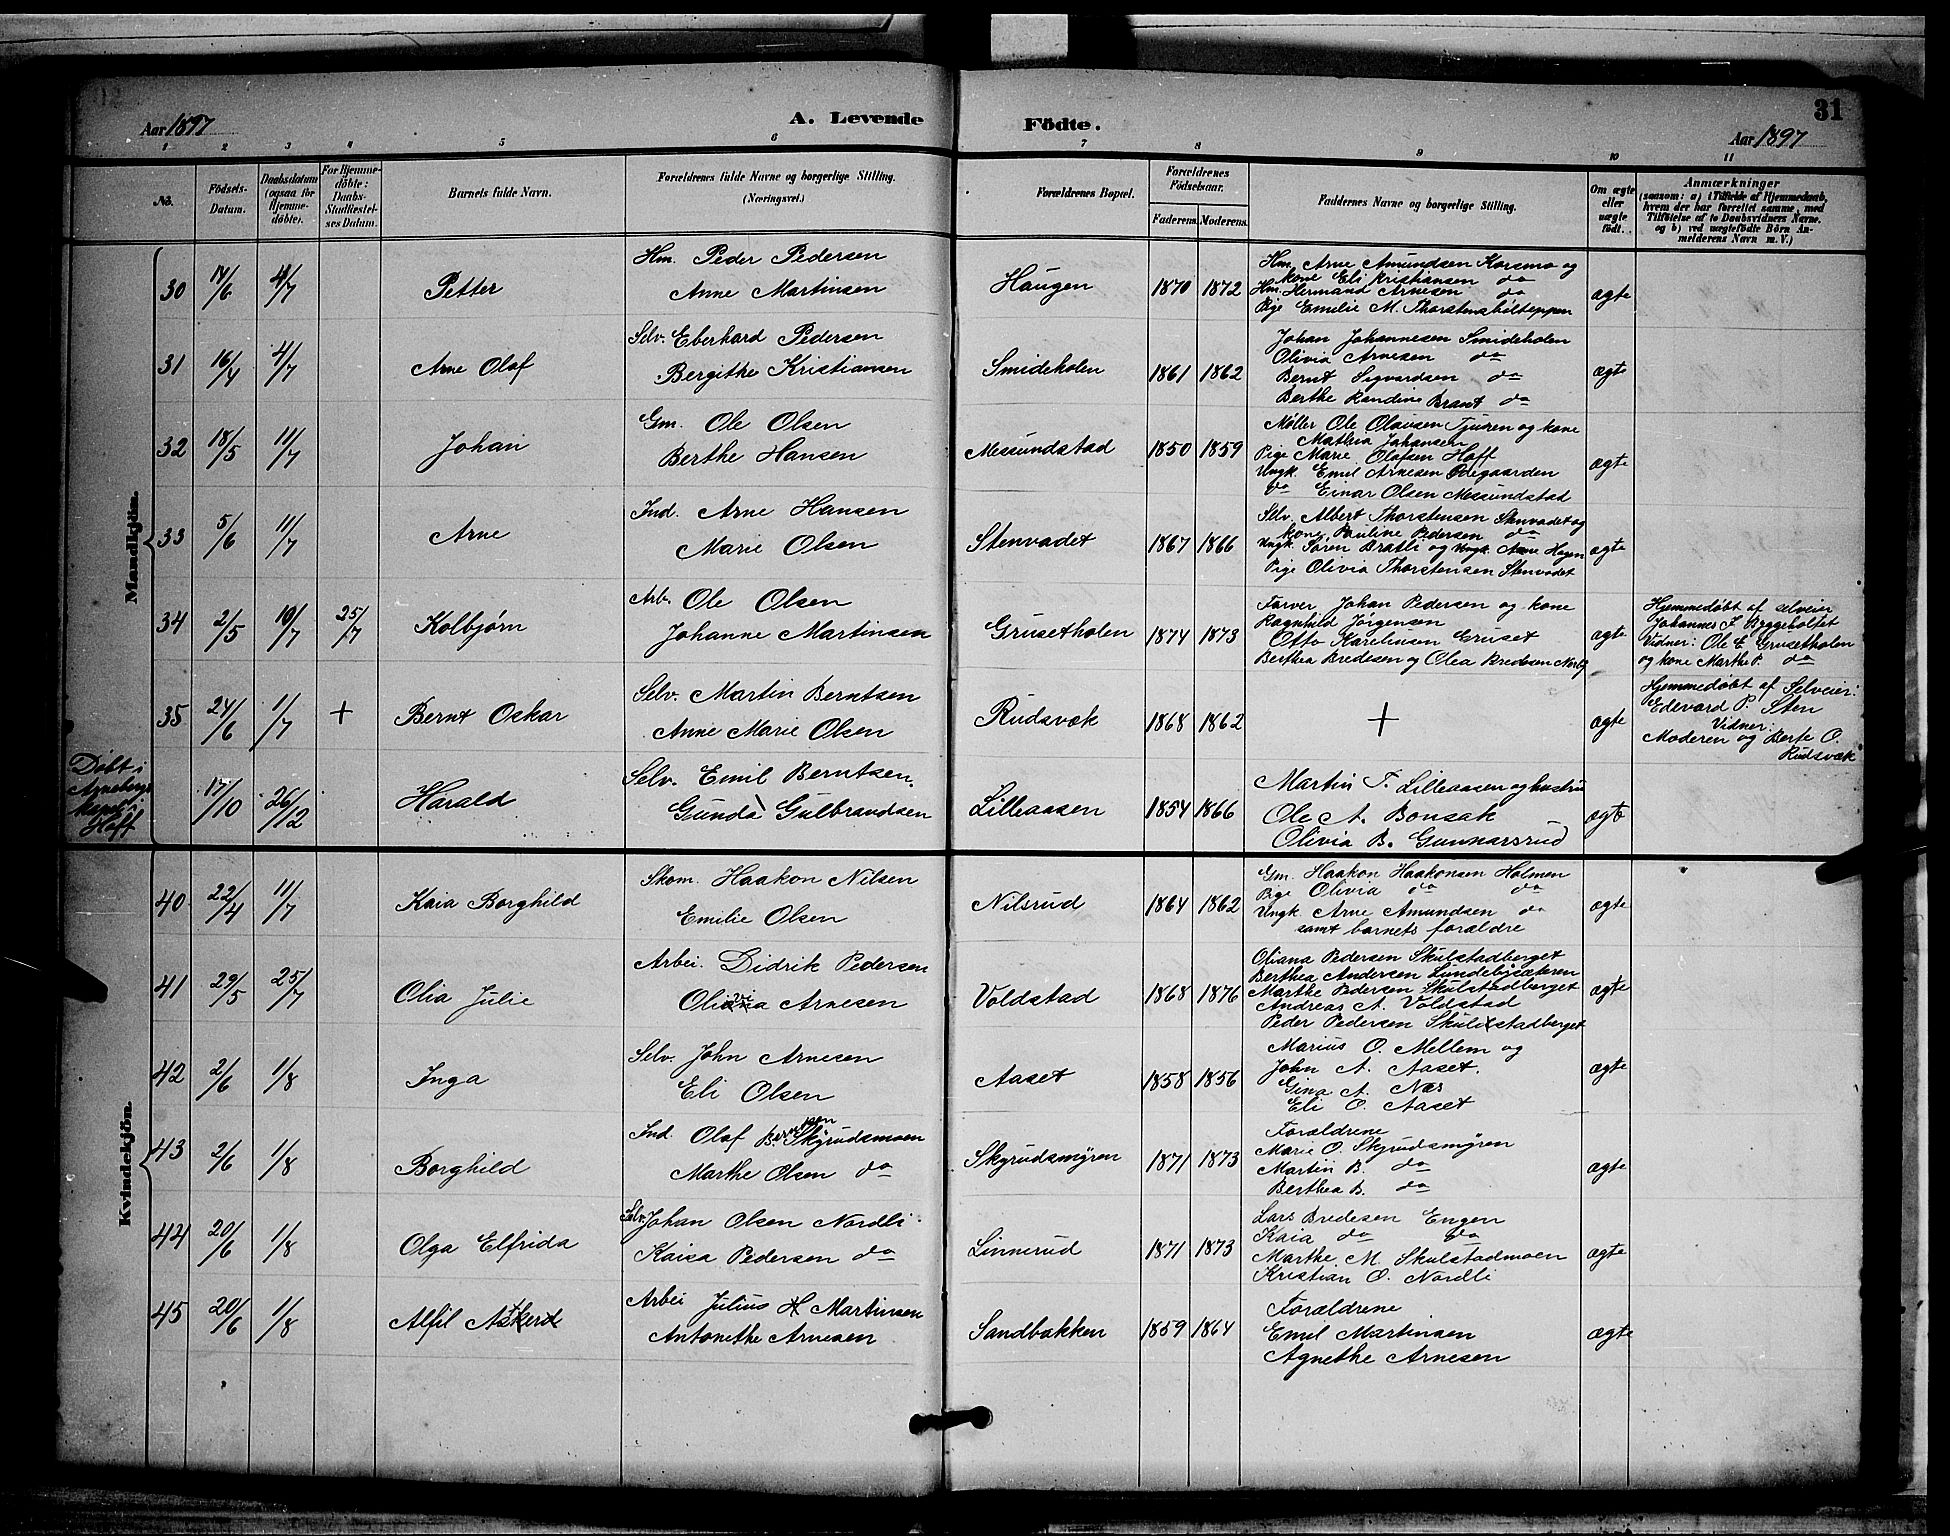 Aar 1897
A. Levende
Födte.
31
Aar 1897
1 2 3 4 5 6 7 8 9 10 11
No.
Födsels-
Datum.
Daabsdatum
(ogsaa for
Hjemme-
döbte).
For Hjemme-
döbte:
Daabs-
Stadfæstel-
ses Datum.
Barnets fulde Navn.
Forældrenes fulde Navne og borgerlige Stilling.
(Næringsvei.)
Forældrenes Bopæl.
Forældrenes
Födselsaar.
Faderens. Moderens.
Faddernes Navne og borgerlige Stilling.
Om ægte
eller
uægte
födt.
Anmærkninger
(saasom: a) i Tilfælde af Hjemmedaab,
hvem der har forrettet samme, med
Tilföielse af to Daabsvidners Navne,
og b) ved uægtefödte Börn An-
melderens Navn m. V.)
Mandkjön.
30 14/6 4/7 Petter
Hm. Peder Pedersen
Anne Martinsen
Haugen 1870 1872
Hm. Arne Amundsen Korsmo og
kone Eli Kristiansen do
Hm. Hermand Arnesen do
Pige Emilie M. Thorstensbölteppen
ægte
31 16/4 4/7 Arne Olaf
Selv. Eberhard Pedersen
Bergithe Kristiansen
Smideholen 1861 1862
Johan Johannesen Smideholen
Olivia Arnesen do
Bernt Sigvardsen do
Berthe Randine Brant do
ægte
32 18/5 11/7 Johan
Gm. Ole Olsen
Berthe Hansen
Mesundstad 1850 1859
Møller Ole Olausen Tjuren og kone
Mathea Johansen
Pige Marie Olafsen Hoff
Ungk. Emil Arnesen Ødegaarden
do Einar Olsen Mesundstad
ægte
33 5/6 11/7 Arne
Ind. Arne Hansen
Marie Olsen
Stenvadet 1867 1866
Selv. Albert Thorstensen Stenvadet og
kone Pauline Pedersen do
Ungk. Sören Bratli og Ungk. Arne Hagen
Pige Olivia Thorstensen Stenvadet
ægte
34 2/5 10/7 25/7 Kolbjørn
Arb. Ole Olsen
Johanne Martinsen
Grusetholen 1874 1873
Farver Johan Pedersen og kone
Ragnhild Jørgensen
Otto Karelius Gruset
Berthea Bredesen og Olea Bredesen Norby
ægte
Hjemmedøbt af selveier
Johannes F. Byggeholtet
Vidner: Ole E. Grusetholen
og kone Marthe P. do
35 24/6 1/7 + Bernt Oskar
Selv. Martin Berntsen
Anne Marie Olsen
Rudsvæk 1868 1862
+
ægte
Hjemmedøbt af Selveier:
Edevard P. Sten
Vidner:
Moderen og Berte O.
Rudsvæk
Døbt i
Hoff
17/10 26/12 Harald
Selv. Emil Berntsen
Gunda Gulbrandsen
Lilleaasen 1854 1866
Martin F. Lilleaasen og hustru
Ole A. Bonsak
Olivia B. Gunnarsrud
ægte
Kvindekjön.
40 22/4 11/7 Kaia Borghild
Skom. Haakon Nilsen
Emilie Olsen
Nilsrud 1864 1862
Gm. Haakon Haakonsen Holmen
Pige Olivia do do
Ungk. Arne Amundsen do
samt barnets forældre
ægte
41 29/5 25/7 Olia Julie
Arbei. Didrik Pedersen
Olivia Arnesen
Voldstad 1868 1876
Oliana Pedersen Skulstadberget
Berthea Andersen Lundebysæteren
Marthe Pedersen Skulstadberget
Andreas A. Voldstad
Peder Pedersen Skulstadberget
ægte
42 2/6 1/8 Inga
Selv. John Arnesen
Eli Olsen
Aaset 1858 1856
Marius O. Mellem og
John A. Aaset.
Gina A. Næs
Eli O. Aaset
ægte
43 2/6 1/8 Borghild
Ind. Olaf Berntsen Skyrudsmoen
Marthe Olsen do
Skyrudsmyren 1871 1873
Forældrene
Marie O. Skyrudsmyren
Martin B. do
Berthea B. do
ægte
44 20/6 1/8 Olga Elfrida
Selv. Johan Olsen Nordli
Kaisa Pedersen do
Linnerud 1871 1873
Lars Bredesen Engen
Kaia do do
Marthe M. Skulstadmoen
Kristian O. Nordli
ægte
45 20/6 1/8 Alfil
Arbei Julius H Martinsen
Antonethe Arnesen
Sandbakken 1859 1864
Forældrene
Emil Martinsen
Agnethe Arnesen
ægte